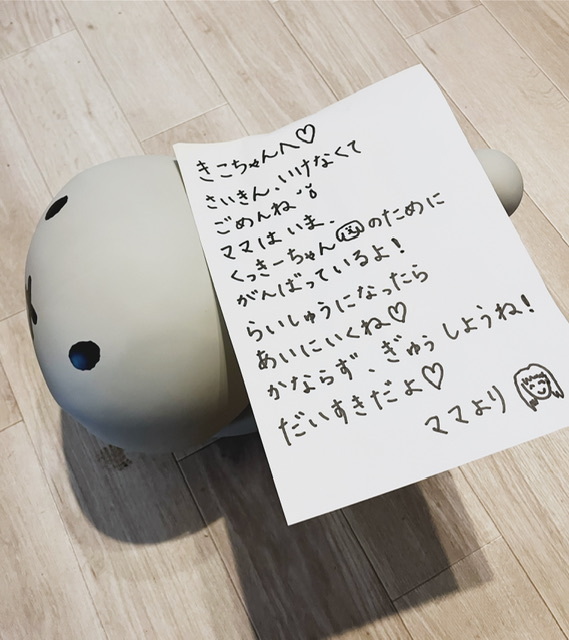 きこちゃんへ♡
さいきん、いけなくて
ごめんね
ママは いま、
くっきーちゃんのために
がんばっているよ!
らいしゅうになったら
あいにいくね♡
かならず、ぎゅうしようね!
だいすきだよ♡
ママより